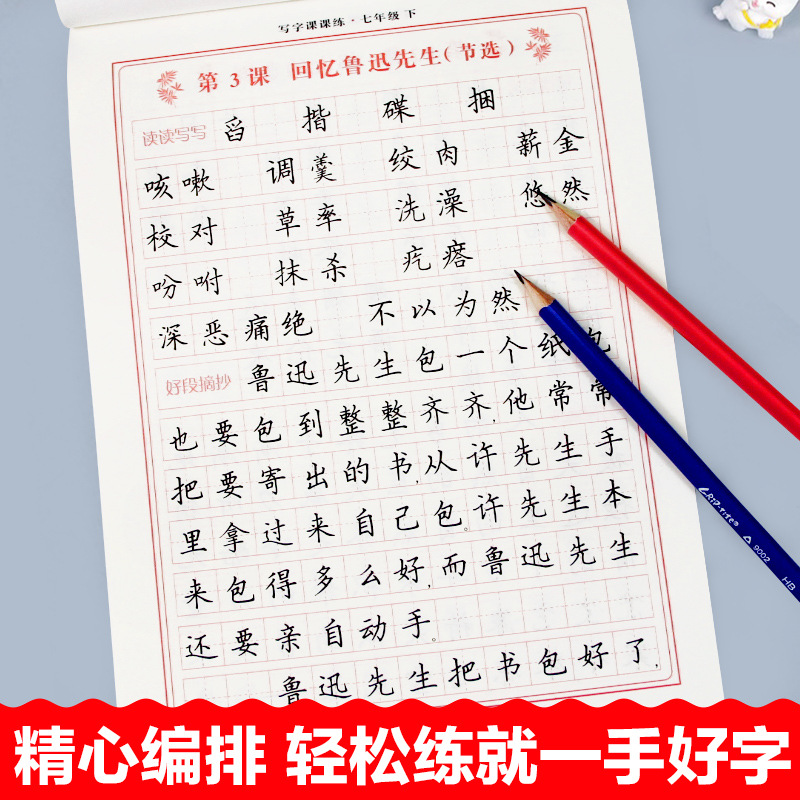 写字课课练·七年级 下
第3课 回忆鲁迅先生(节选)
读读写写 舀 揩 碟 捆
咳嗽 调羹 绞肉 薪金
校对 草率 洗澡 悠然
吩咐 抹杀 疙瘩
深恶痛绝 不以为然
好段摘抄 鲁迅先生包一个纸包
也要包到整整齐齐,他常常
把要寄出的书,从许先生手
里拿过来自己包。许先生本
来包得多么好,而鲁迅先生
还要亲自动手。
鲁迅先生把书包好了,
GRIP-TITE® 9002 HB
精心编排 轻松练就一手好字